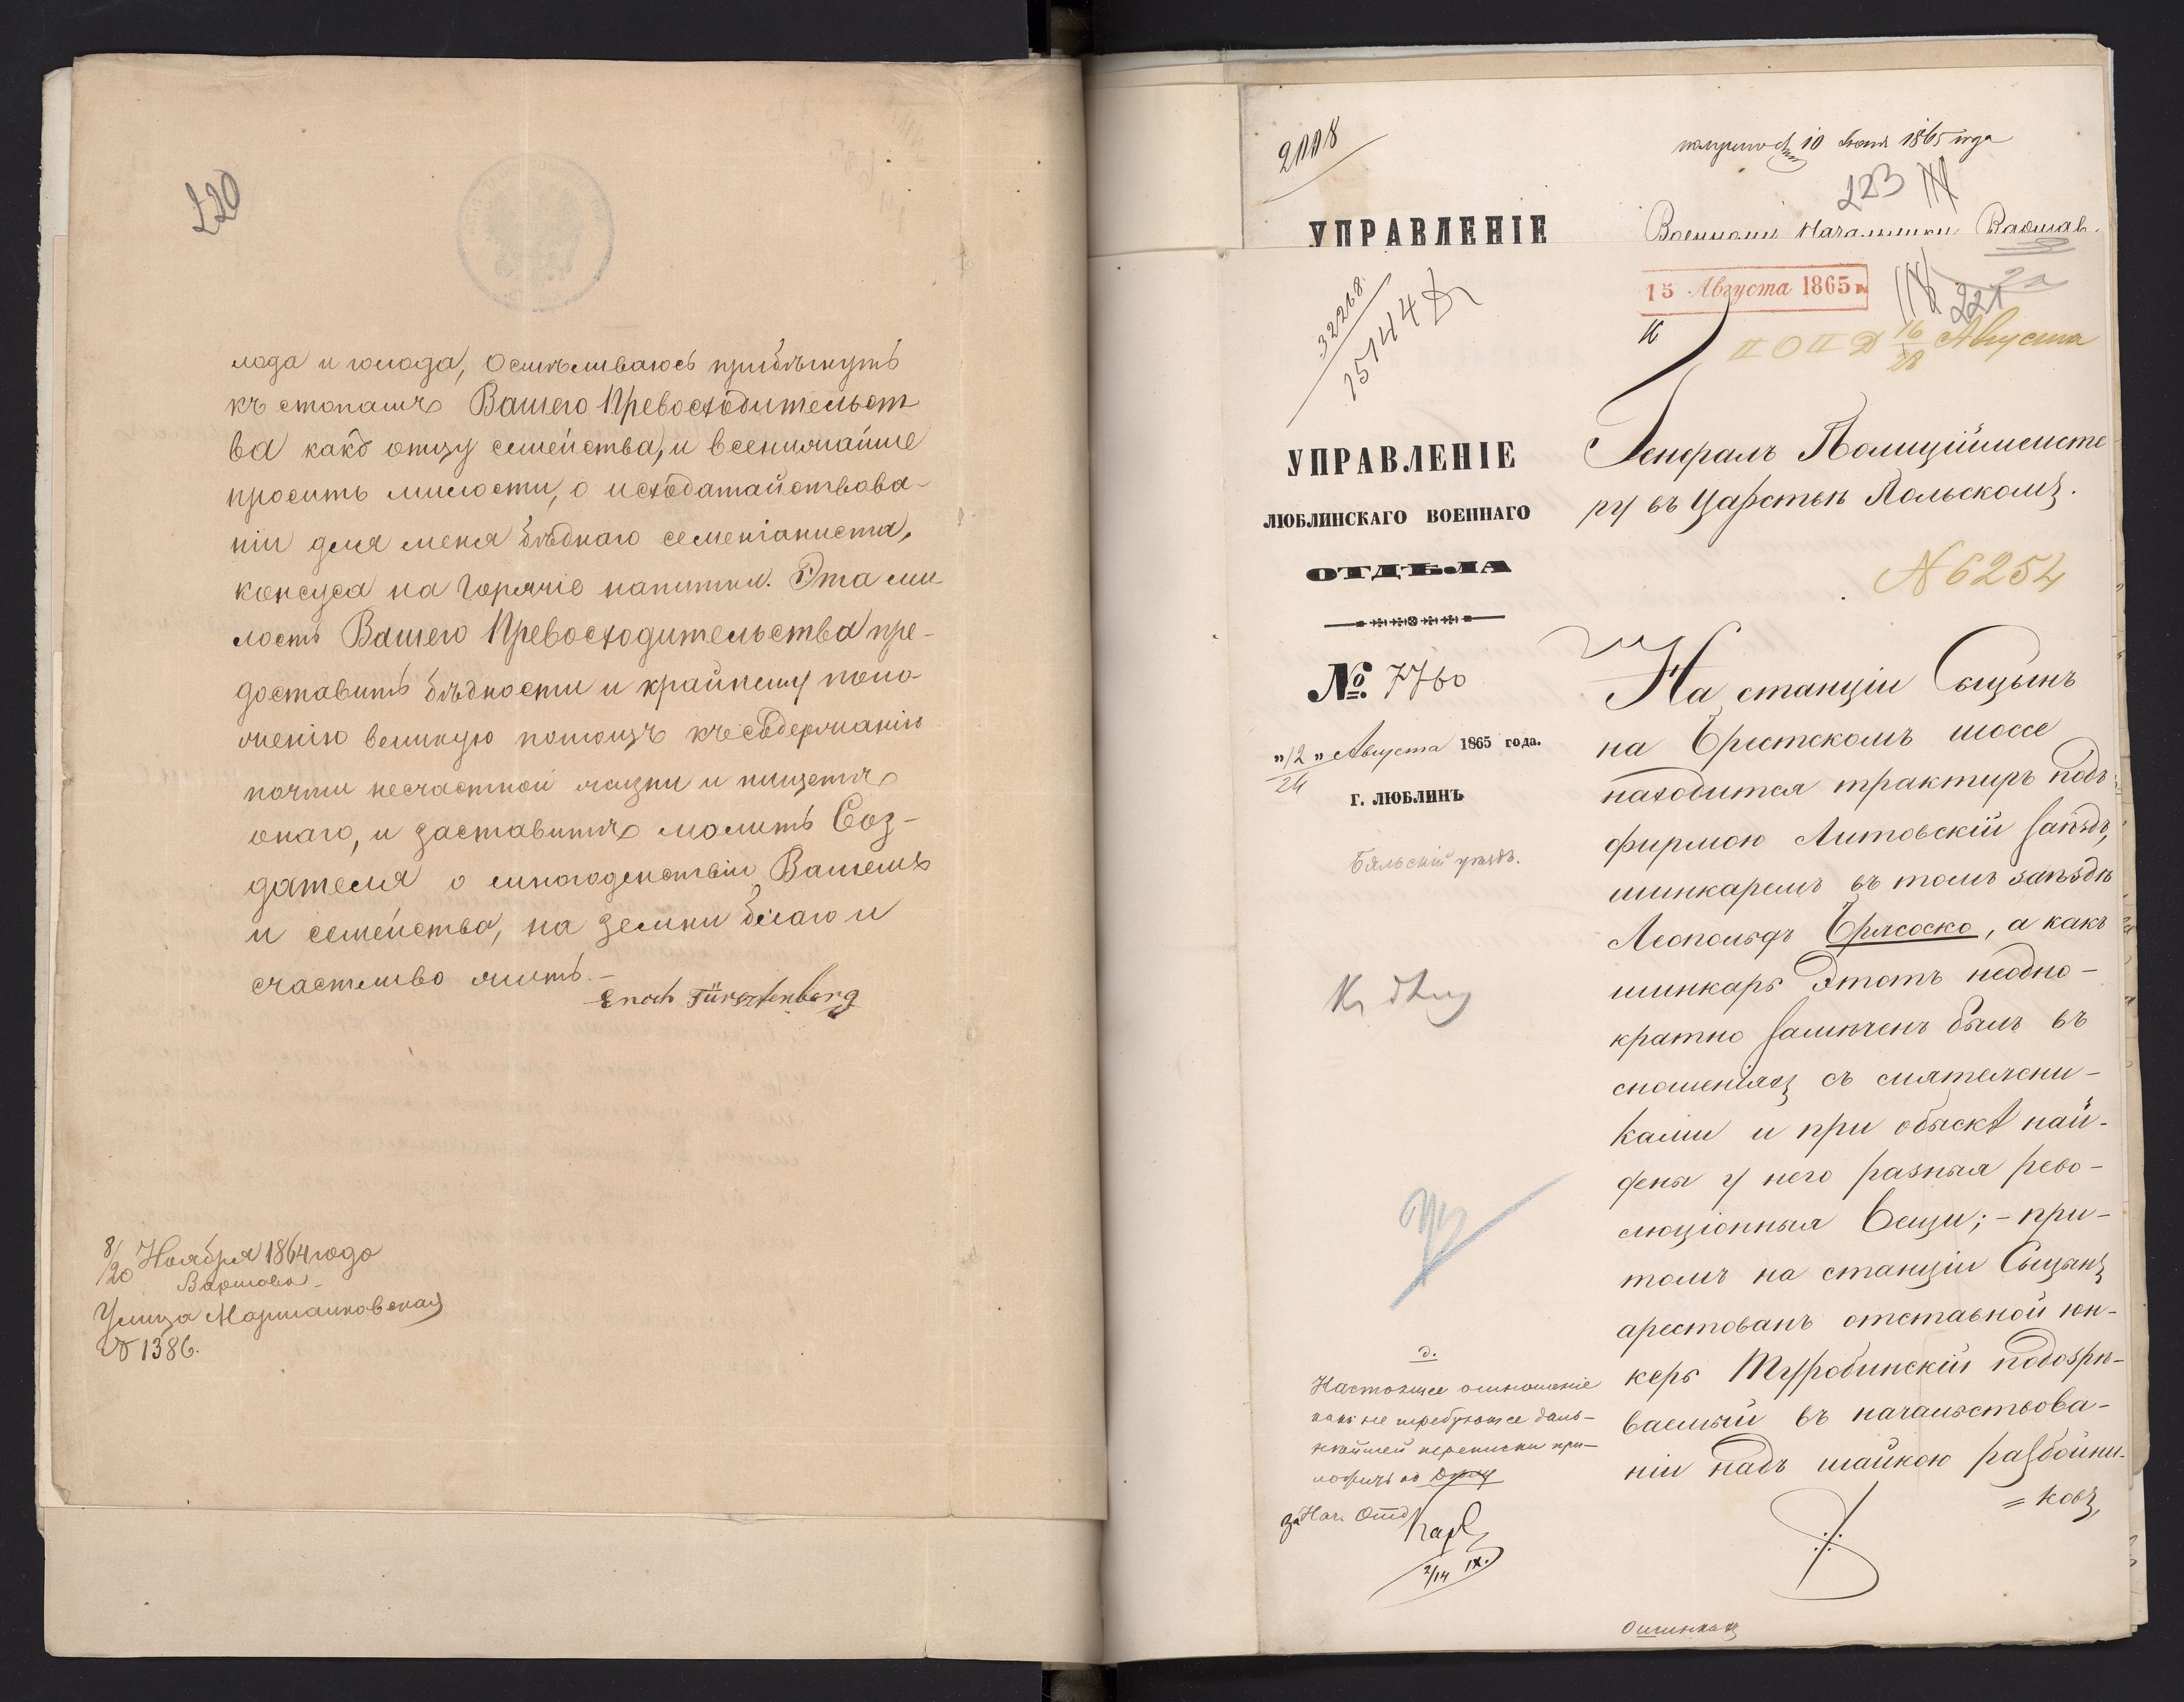 220
лода и голода, осмѣливаюсь прибѣгнуть
къ стопамъ Вашего Превосходительст
ва какъ отцу семейства, и всенижайше
просить милости, о исходатайствова-
ніи для меня бѣднаго
консуса на Горячіе напитки. Эта ми
лость Вашего Превосходительства пре-
доставитъ бѣдности и крайнему поло-
женію великую помощь къ содержанію
почти несчастной жизни и
онаго, и заставитъ молить Соз-
дателя о многоденствіи Вашемъ
и семейства, на земли благо и
счастливо жить.-
Enoch Fürsztenberg
8/20 Ноября 1864 года
Варшава
Улица Маршалковская
№ 1386.
2118
получено 10 Іюня 1865 года
223
УПРАВЛЕНІЕ
Военный Начальникъ Варшав.
32268
15144
15 Августа 1865 г.
221
П О П Д 16/28 Августа
УПРАВЛЕНІЕ
ЛЮБЛИНСКАГО ВОЕННАГО
ОТДѢЛА
№ 7760
"12/24" Августа 1865 года.
г. ЛЮБЛИНЪ
Бяльскій уѣздъ.
Къ дѣлу
Генералъ Полицiймейсте
ру въ Царствѣ Польскомъ.
№ 6254
На станціи Сыцынъ
на Брестскомъ шоссе
находится трактиръ подъ
фирмою Литовскій Заѣздъ,
шинкаремъ въ томъ заѣздѣ
Леопольдъ Брясоско, а какъ
шинкарь этотъ неодно-
кратно замѣченъ былъ въ
сношеніяхъ съ мятежни-
ками и при обыскѣ най-
дены у него разныя рево-
люціонныя вещи; - при-
томъ на станціи Сыцынъ
арестованъ отставной юн-
керъ Туробинскій подозрѣ-
ваемый въ начальствова-
ніи надъ шайкою разбойни-
= ковъ,
Д.
Настоящее отношеніе
какъ не требующее даль-
нѣйшей переписки при-
ложить къ дѣлу
За Нач. Отд.
2/14 IX.